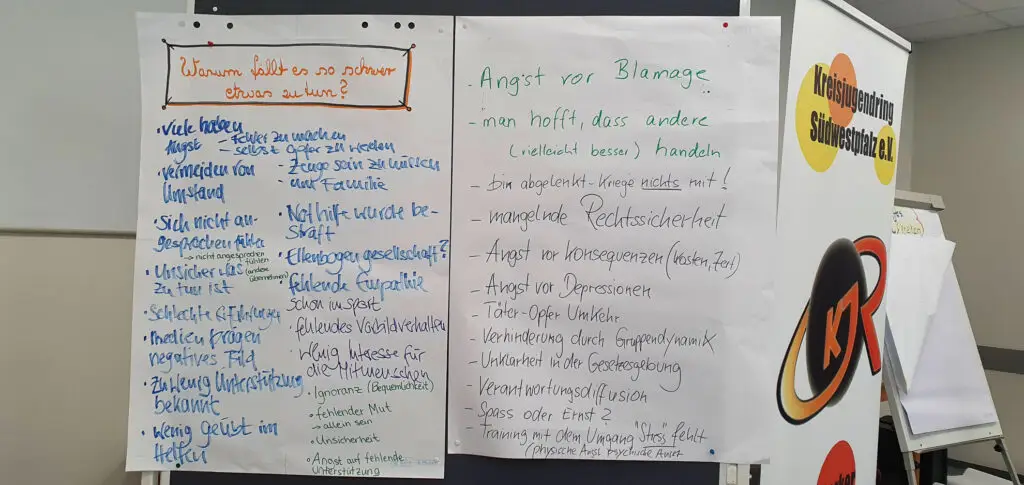 Warum fällt es so schwer
etwas zu tun?
• Viele haben
Angst – Fehler zu machen
– selbst Opfer zu werden
– Zeuge sein zu müssen
– um Familie
• vermeiden von
Umstand
• Sich nicht an-
gesprochen fühlen
→ nicht angesprochen
fühlen
(andere
übernehmen)
• Unsicher was
zu tun ist
• Schlechte Erfahrungen
• medien prägen
negatives Bild
• zu wenig Unterstützung
bekannt
• wenig geübt im
Helfen
• Nothilfe wurde be-
straft
• Ellenbogengesellschaft?
• fehlende Empathie
schon im Sport
• fehlendes Vorbildverhalten
• wenig Interesse für
die Mitmenschen
• Ignoranz (Bequemlichkeit)
• fehlender Mut
→ allein sein
• Unsicherheit
• Angst auf fehlende
Unterstützung
- Angst vor Blamage
- man hofft, dass andere
(vielleicht besser) handeln
- bin abgelenkt - kriege nichts mit!
- mangelnde Rechtssicherheit
- Angst vor Konsequenzen (Kosten, Zeit)
- Angst vor Depressionen
- Täter-Opfer Umkehr
- Verhinderung durch Gruppendynamik
- Unklarheit in der Gesetzesgebung
- Verantwortungsdiffusion
- Spass oder Ernst?
- Training mit dem Umgang "Stress" fehlt
(physische Angst psychische Angst
Kreisjugendring
Südwestpfalz e.V.
KJR